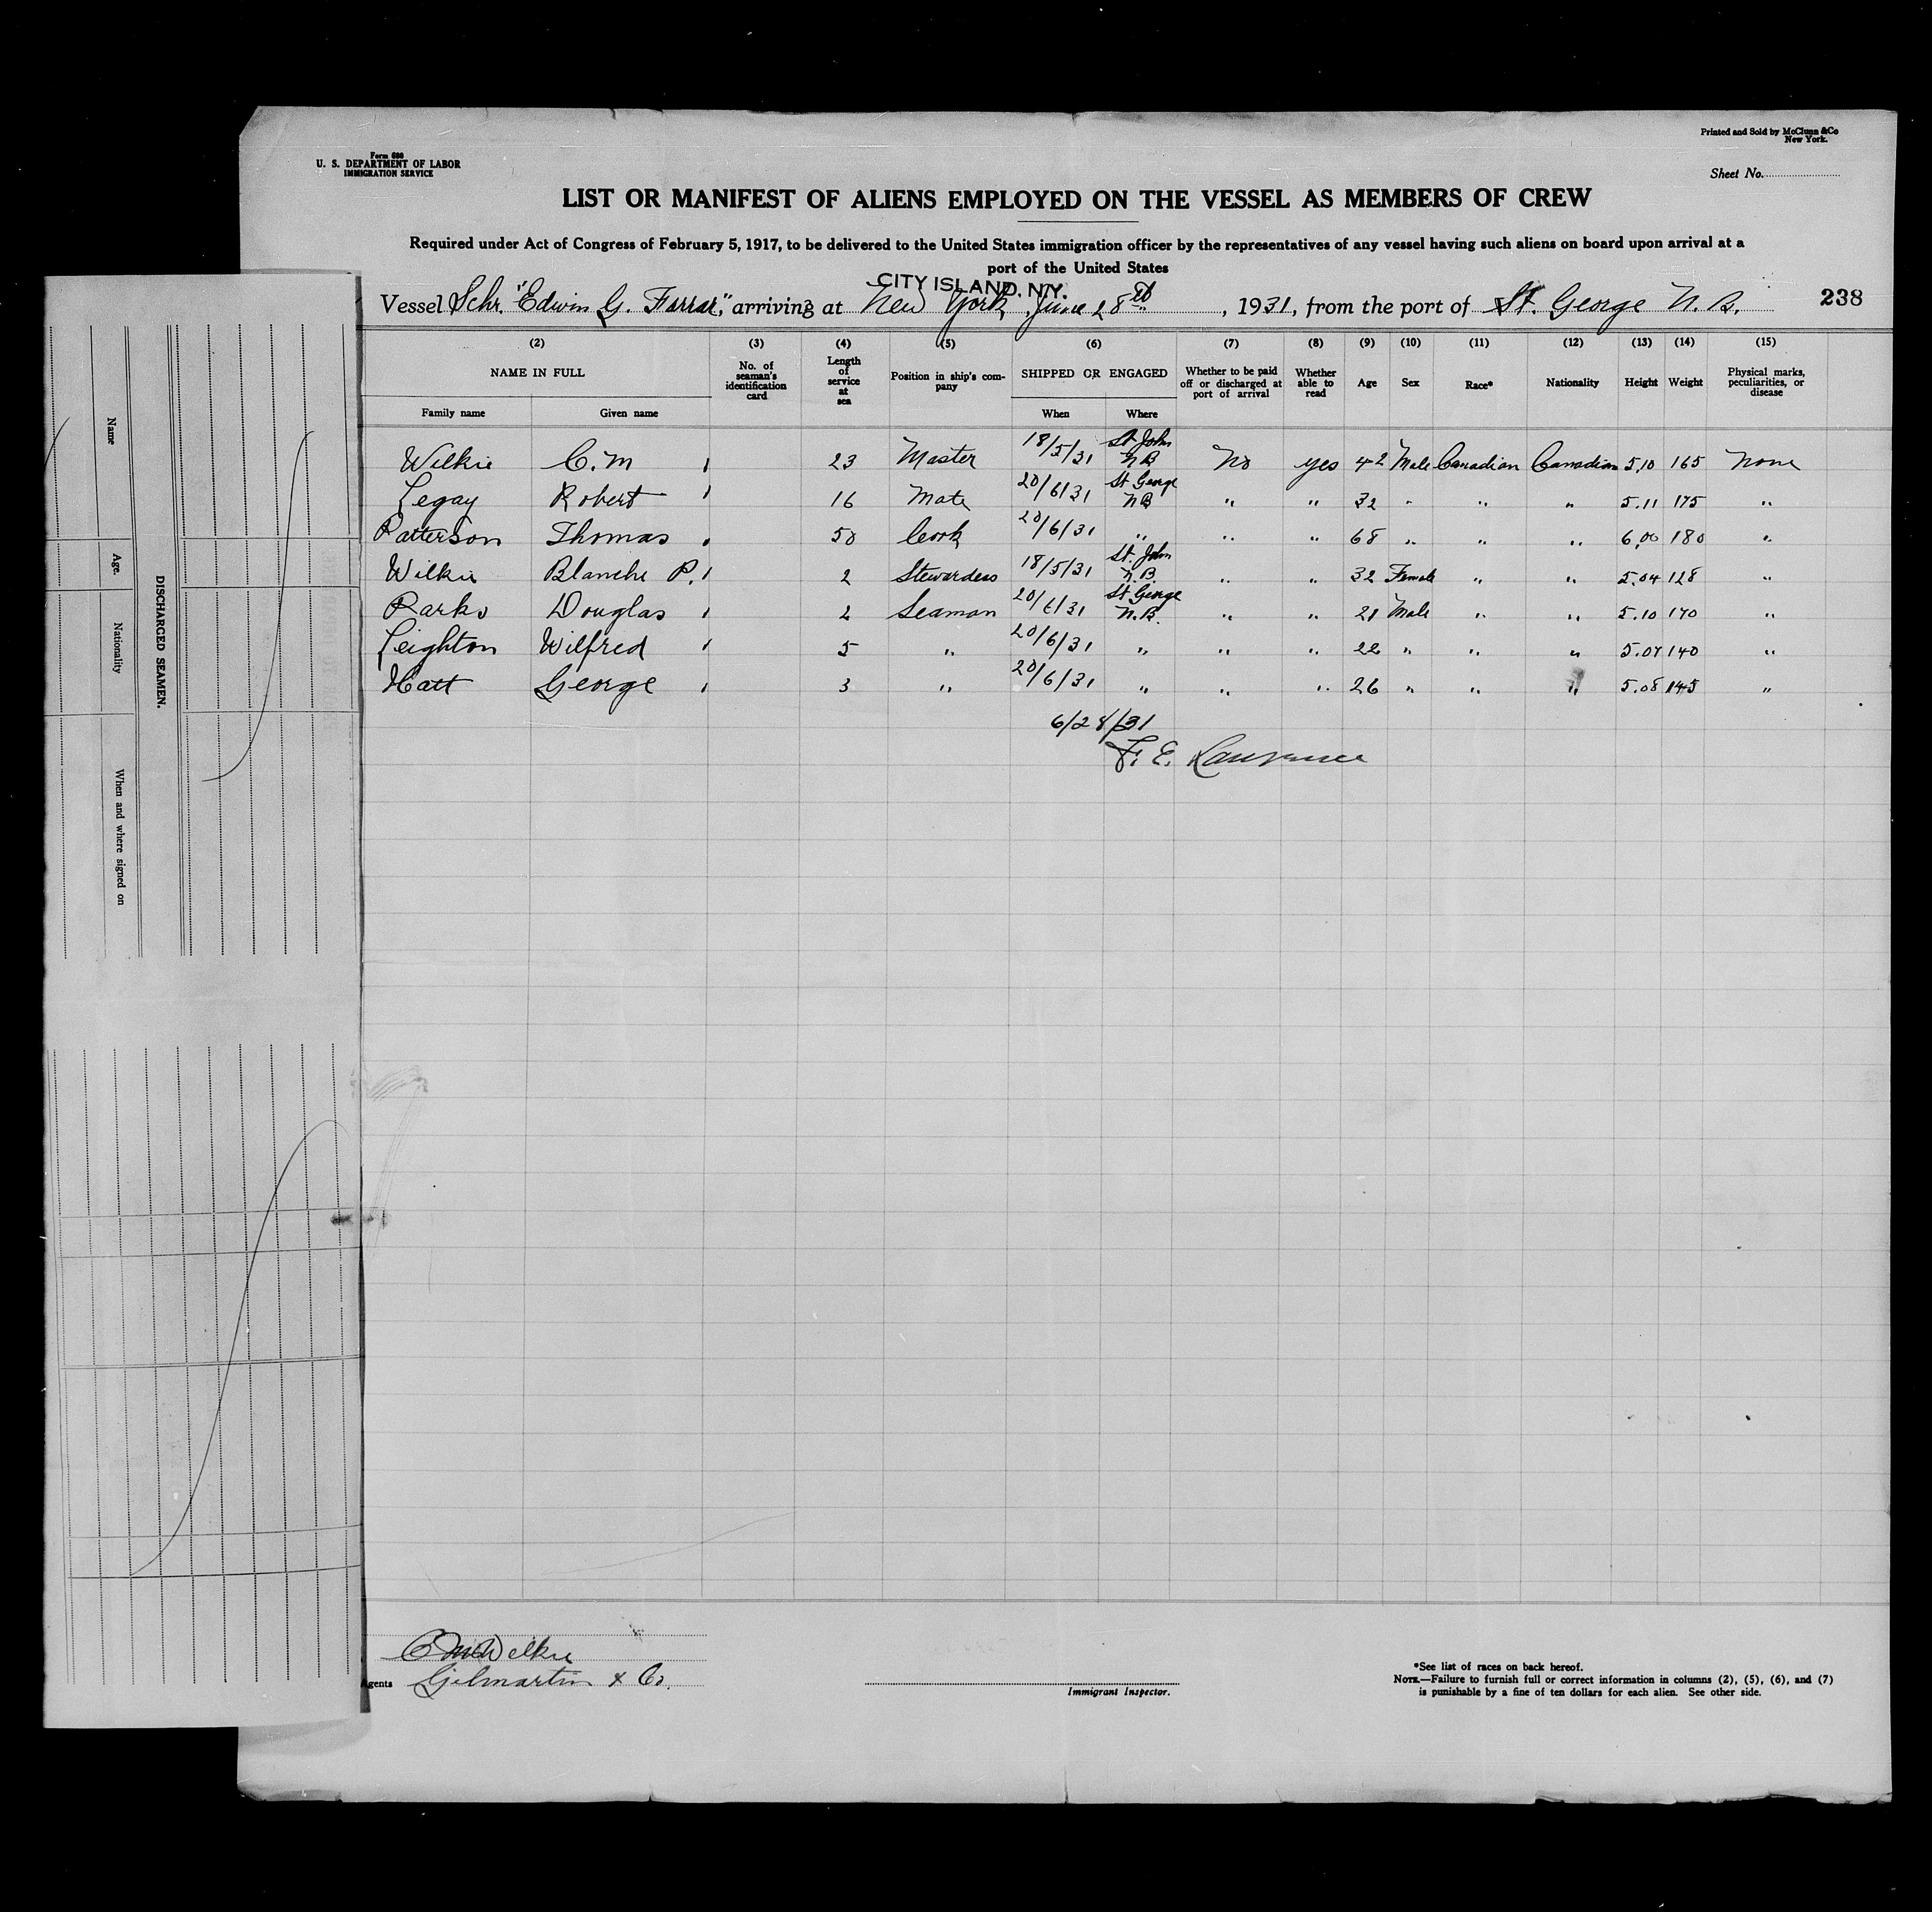 Printed and Sold by McClunn &Co
New York.
Form 680
U. S. DEPARTMENT OF LABOR
IMMIGRATION SERVICE
Sheet No.
LIST OR MANIFEST OF ALIENS EMPLOYED ON THE VESSEL AS MEMBERS OF CREW
Required under Act of Congress of February 5, 1917, to be delivered to the United States immigration officer by the representatives of any vessel having such aliens on board upon arrival at a
port of the United States
CITY ISLAND. N.Y.
Vessel Schr. "Edwin G. Farrar", arriving at New York, June 28th, 1931, from the port of St. George N. B. 238
(2) (3) (4) (5) (6) (7) (8) (9) (10) (11) (12) (13) (14) (15)
NAME IN FULL No. of seaman's identification card Length of service at sea Position in ship's company SHIPPED OR ENGAGED Whether to be paid off or discharged at port of arrival Whether able to read Age Sex Race* Nationality Height Weight Physical marks, peculiarities, or disease
Family name Given name When Where
Wilkie C. M 23 Master 18/5/31 St John N B No yes 42 Male Canadian Canadian 5,10 165 None
Legay Robert 16 Mate 20/6/31 St George N B " " 32 " " " 5.11 175 "
Patterson Thomas 50 Cook 20/6/31 " " " 68 " " " 6,00 180 "
Wilkie Blanche P. 2 Stewardess 18/5/31 St. John N. B. " " 32 Female " " 5.04 128 "
Parks Douglas 2 Seaman 20/6/31 St George N. B. " " 21 Male " " 5.10 170 "
Leighton Wilfred 5 " 20/6/31 " " " 22 " " " 5.07 140 "
Hatt George 3 " 20/6/31 " " " 26 " " " 5.08 145 "
6/28/31
F. E. Lawrence
C M Wilkie
Agents Gilmartin & Co.
Immigrant Inspector.
*See list of races on back hereof.
NOTE.—Failure to furnish full or correct information in columns (2), (5), (6), and (7)
is punishable by a fine of ten dollars for each alien. See other side.
DISCHARGED SEAMEN.
Name
Age.
Nationality
When and where signed on